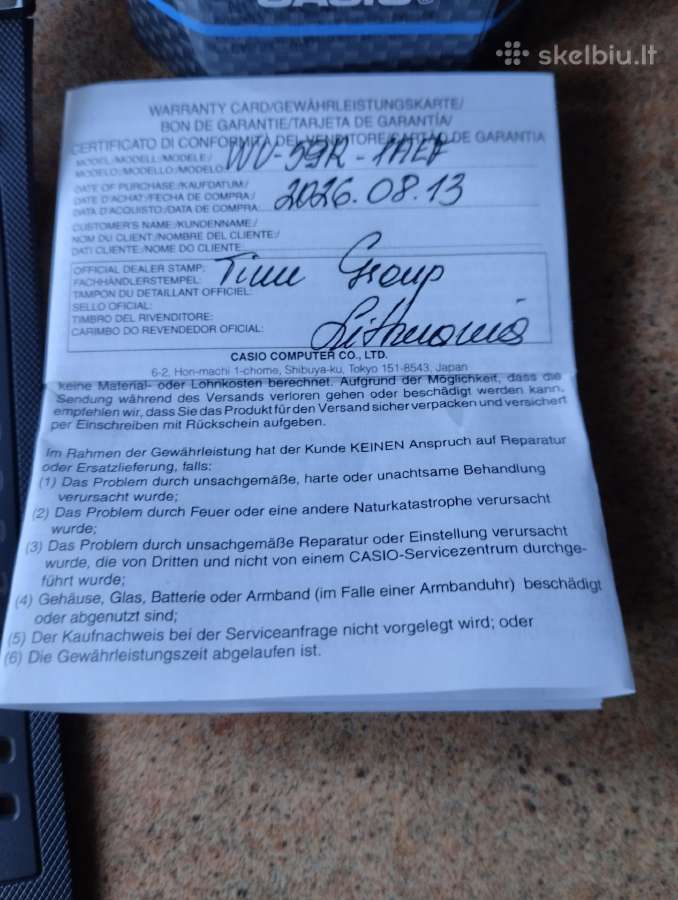 CASIO®
skelbiu.lt
WARRANTY CARD/GEWÄHRLEISTUNGSKARTE/
BON DE GARANTIE/TARJETA DE GARANTÍA/
CERTIFICATO DI CONFORMITÀ DEL VENDITORE/CARTÃO DE GARANTIA
MODEL/MODELL/MODÈLE/
MODELO/MODELLO/MODELO: WV-59R-1AEF
DATE OF PURCHASE/KAUFDATUM/
DATE D'ACHAT/FECHA DE COMPRA/
DATA D'ACQUISTO/DATA DE COMPRA: 2026.08.13
CUSTOMER'S NAME/KUNDENNAME/
NOM DU CLIENT/NOMBRE DEL CLIENTE/
DATI CLIENTE/NOME DO CLIENTE
OFFICIAL DEALER STAMP: Time Group
FACHHÄNDLERSTEMPEL:
TAMPON DU DÉTAILLANT OFFICIEL:
SELLO OFICIAL:
TIMBRO DEL RIVENDITORE:
CARIMBO DO REVENDEDOR OFICIAL: Lithuania
CASIO COMPUTER CO., LTD.
6-2, Hon-machi 1-chome, Shibuya-ku, Tokyo 151-8543, Japan
keine Material- oder Lohnkosten berechnet. Aufgrund der Möglichkeit, dass die
Sendung während des Versands verloren gehen oder beschädigt werden kann,
empfehlen wir, dass Sie das Produkt für den Versand sicher verpacken und versichert
per Einschreiben mit Rückschein aufgeben.
Im Rahmen der Gewährleistung hat der Kunde KEINEN Anspruch auf Reparatur
oder Ersatzlieferung, falls:
(1) Das Problem durch unsachgemäße, harte oder unachtsame Behandlung
verursacht wurde;
(2) Das Problem durch Feuer oder eine andere Naturkatastrophe verursacht
wurde;
(3) Das Problem durch unsachgemäße Reparatur oder Einstellung verursacht
wurde, die von Dritten und nicht von einem CASIO-Servicezentrum durchge-
führt wurde;
(4) Gehäuse, Glas, Batterie oder Armband (im Falle einer Armbanduhr) beschädigt
oder abgenutzt sind;
(5) Der Kaufnachweis bei der Serviceanfrage nicht vorgelegt wird; oder
(6) Die Gewährleistungszeit abgelaufen ist.